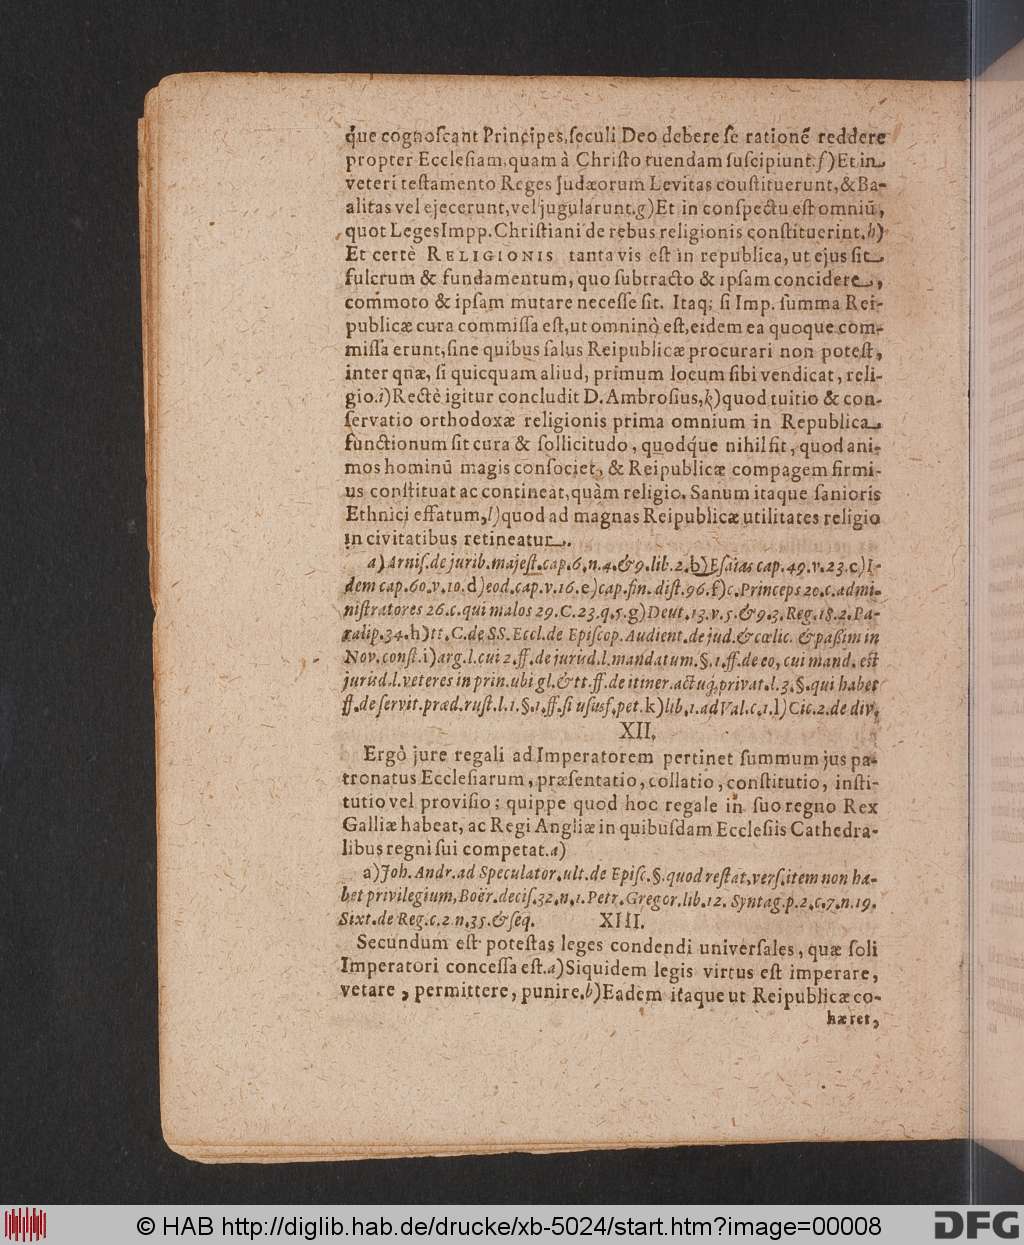 q́ue cognoſcant Principes, ſeculi Deo debere ſe rationẽ reddere
propter Eccleſiam, quam à Chriſto tuendam ſuſcipiunt: f) Et in
veteri teſtamento Reges Judæorum Levitas conſtituerunt, & Ba-
alitas vel ejecerunt, vel jugularunt. g) Et in conſpectu eſt omniũ,
quot Leges Impp. Chriſtiani de rebus religionis conſtituerint. h)
Et certè RELIGIONIS tanta vis eſt in republica, ut ejus ſit
fulcrum & fundamentum, quo ſubtracto & ipſam concidere,
commoto & ipſam mutare neceſſe ſit. Itaq; ſi Imp. ſumma Rei-
publicæ cura commiſſa eſt, ut omninò eſt, eidem ea quoque com-
miſſa erunt, ſine quibus ſalus Reipublicæ procurari non poteſt,
inter quæ, ſi quicquam aliud, primum locum ſibi vendicat, reli-
gio. i) Rectè igitur concludit D. Ambroſius, k) quod tuitio & con-
ſervatio orthodoxæ religionis prima omnium in Republica
functionum ſit cura & ſollicitudo, quodq́ue nihil ſit, quod ani-
mos hominũ magis conſociet, & Reipublicæ compagem firmi-
us conſtituat ac contineat, quàm religio. Sanum itaque ſanioris
Ethnici effatum, l) quod ad magnas Reipublicæ utilitates religio
in civitatibus retineatur.
a) Arniſ. de jurib. majeſt. cap. 6. n. 4. & 9. lib. 2. b) Eſaias cap. 49. v. 23. c) I-
dem cap. 60. v. 10. d) eod. cap. v. 16. e) cap. fin. diſt. 96. f) c. Princeps 20. c. admi-
niſtratores 26. c. qui malos 29. C. 23. q. 5. g) Deut. 13. v. 5. & 9. 3. Reg. 18. 2. Pa-
ralip. 34. h) tt. C. de SS. Eccl. de Epiſcop. Audient. de jud. & cœlic. & paßim in
Nov. conſt. i) arg. l. cui 2. ff. de juriſd. l. mandatum. §. 1. ff. de eo, cui mand. eſt
juriſd. l. veteres in prin. ubi gl. & tt. ff. de itiner. actuq́. privat. l. 3. §. qui habet
ff. de ſervit. præd. ruſt. l. 1. §. 1. ff. ſi uſusf. pet. k) lib. 1. ad Val. c. 1. l) Cic. 2. de div.
XII.
Ergò jure regali ad Imperatorem pertinet ſummum jus pa-
tronatus Eccleſiarum, præſentatio, collatio, conſtitutio, inſti-
tutio vel proviſio; quippe quod hoc regale in ſuo regno Rex
Galliæ habeat, ac Regi Angliæ in quibuſdam Eccleſiis Cathedra-
libus regni ſui competat. a)
a) Joh. Andr. ad Speculator. ult. de Epiſc. §. quod reſtat. verſ. item non ha-
bet privilegium, Boër. deciſ. 32. n. 1. Petr. Gregor. lib. 12. Syntag. p. 2. c. 7. n. 19.
Sixt. de Reg. c. 2 n. 35. & ſeq. XIII.
Secundum eſt poteſtas leges condendi univerſales, quæ ſoli
Imperatori conceſſa eſt. a) Siquidem legis virtus eſt imperare,
vetare, permittere, punire. b) Eadem itaque ut Reipublicæ co-
hæret,
© HAB http://diglib.hab.de/drucke/xb-5024/start.htm?image=00008
DFG